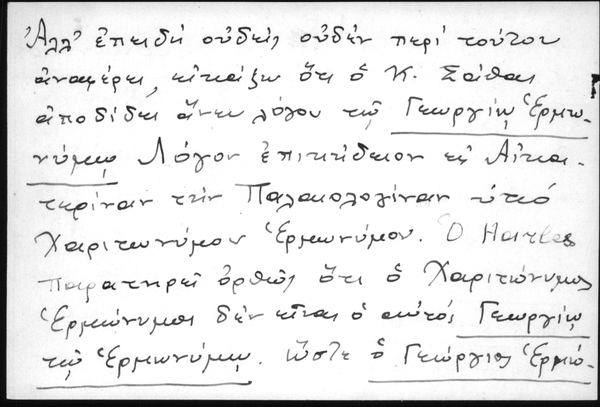 Ἀλλ' ἐπειδὴ οὐδεὶς οὐδὲν περὶ τούτου
ἀναφέρει, εἰκάζω ὅτι ὁ Κ. Σάθας
ἀποδίδει ἄνευ λόγου τῷ Γεωργίῳ Ἑρμω-
νύμῳ Λόγον ἐπικήδειον εἰς Αἰκα-
τερίναν τὴν Παλαιολογίναν ὑπὸ
Χαριτωνύμου Ἑρμωνύμου. Ὁ Harles
παρατηρεῖ ὀρθῶς ὅτι ὁ Χαριτώνυμος
Ἑρμώνυμος δὲν εἶναι ὁ αὐτός Γεωργίῳ
τῷ Ἑρμωνύμῳ. ὥστε ὁ Γεώργιος Ἑρμώ-